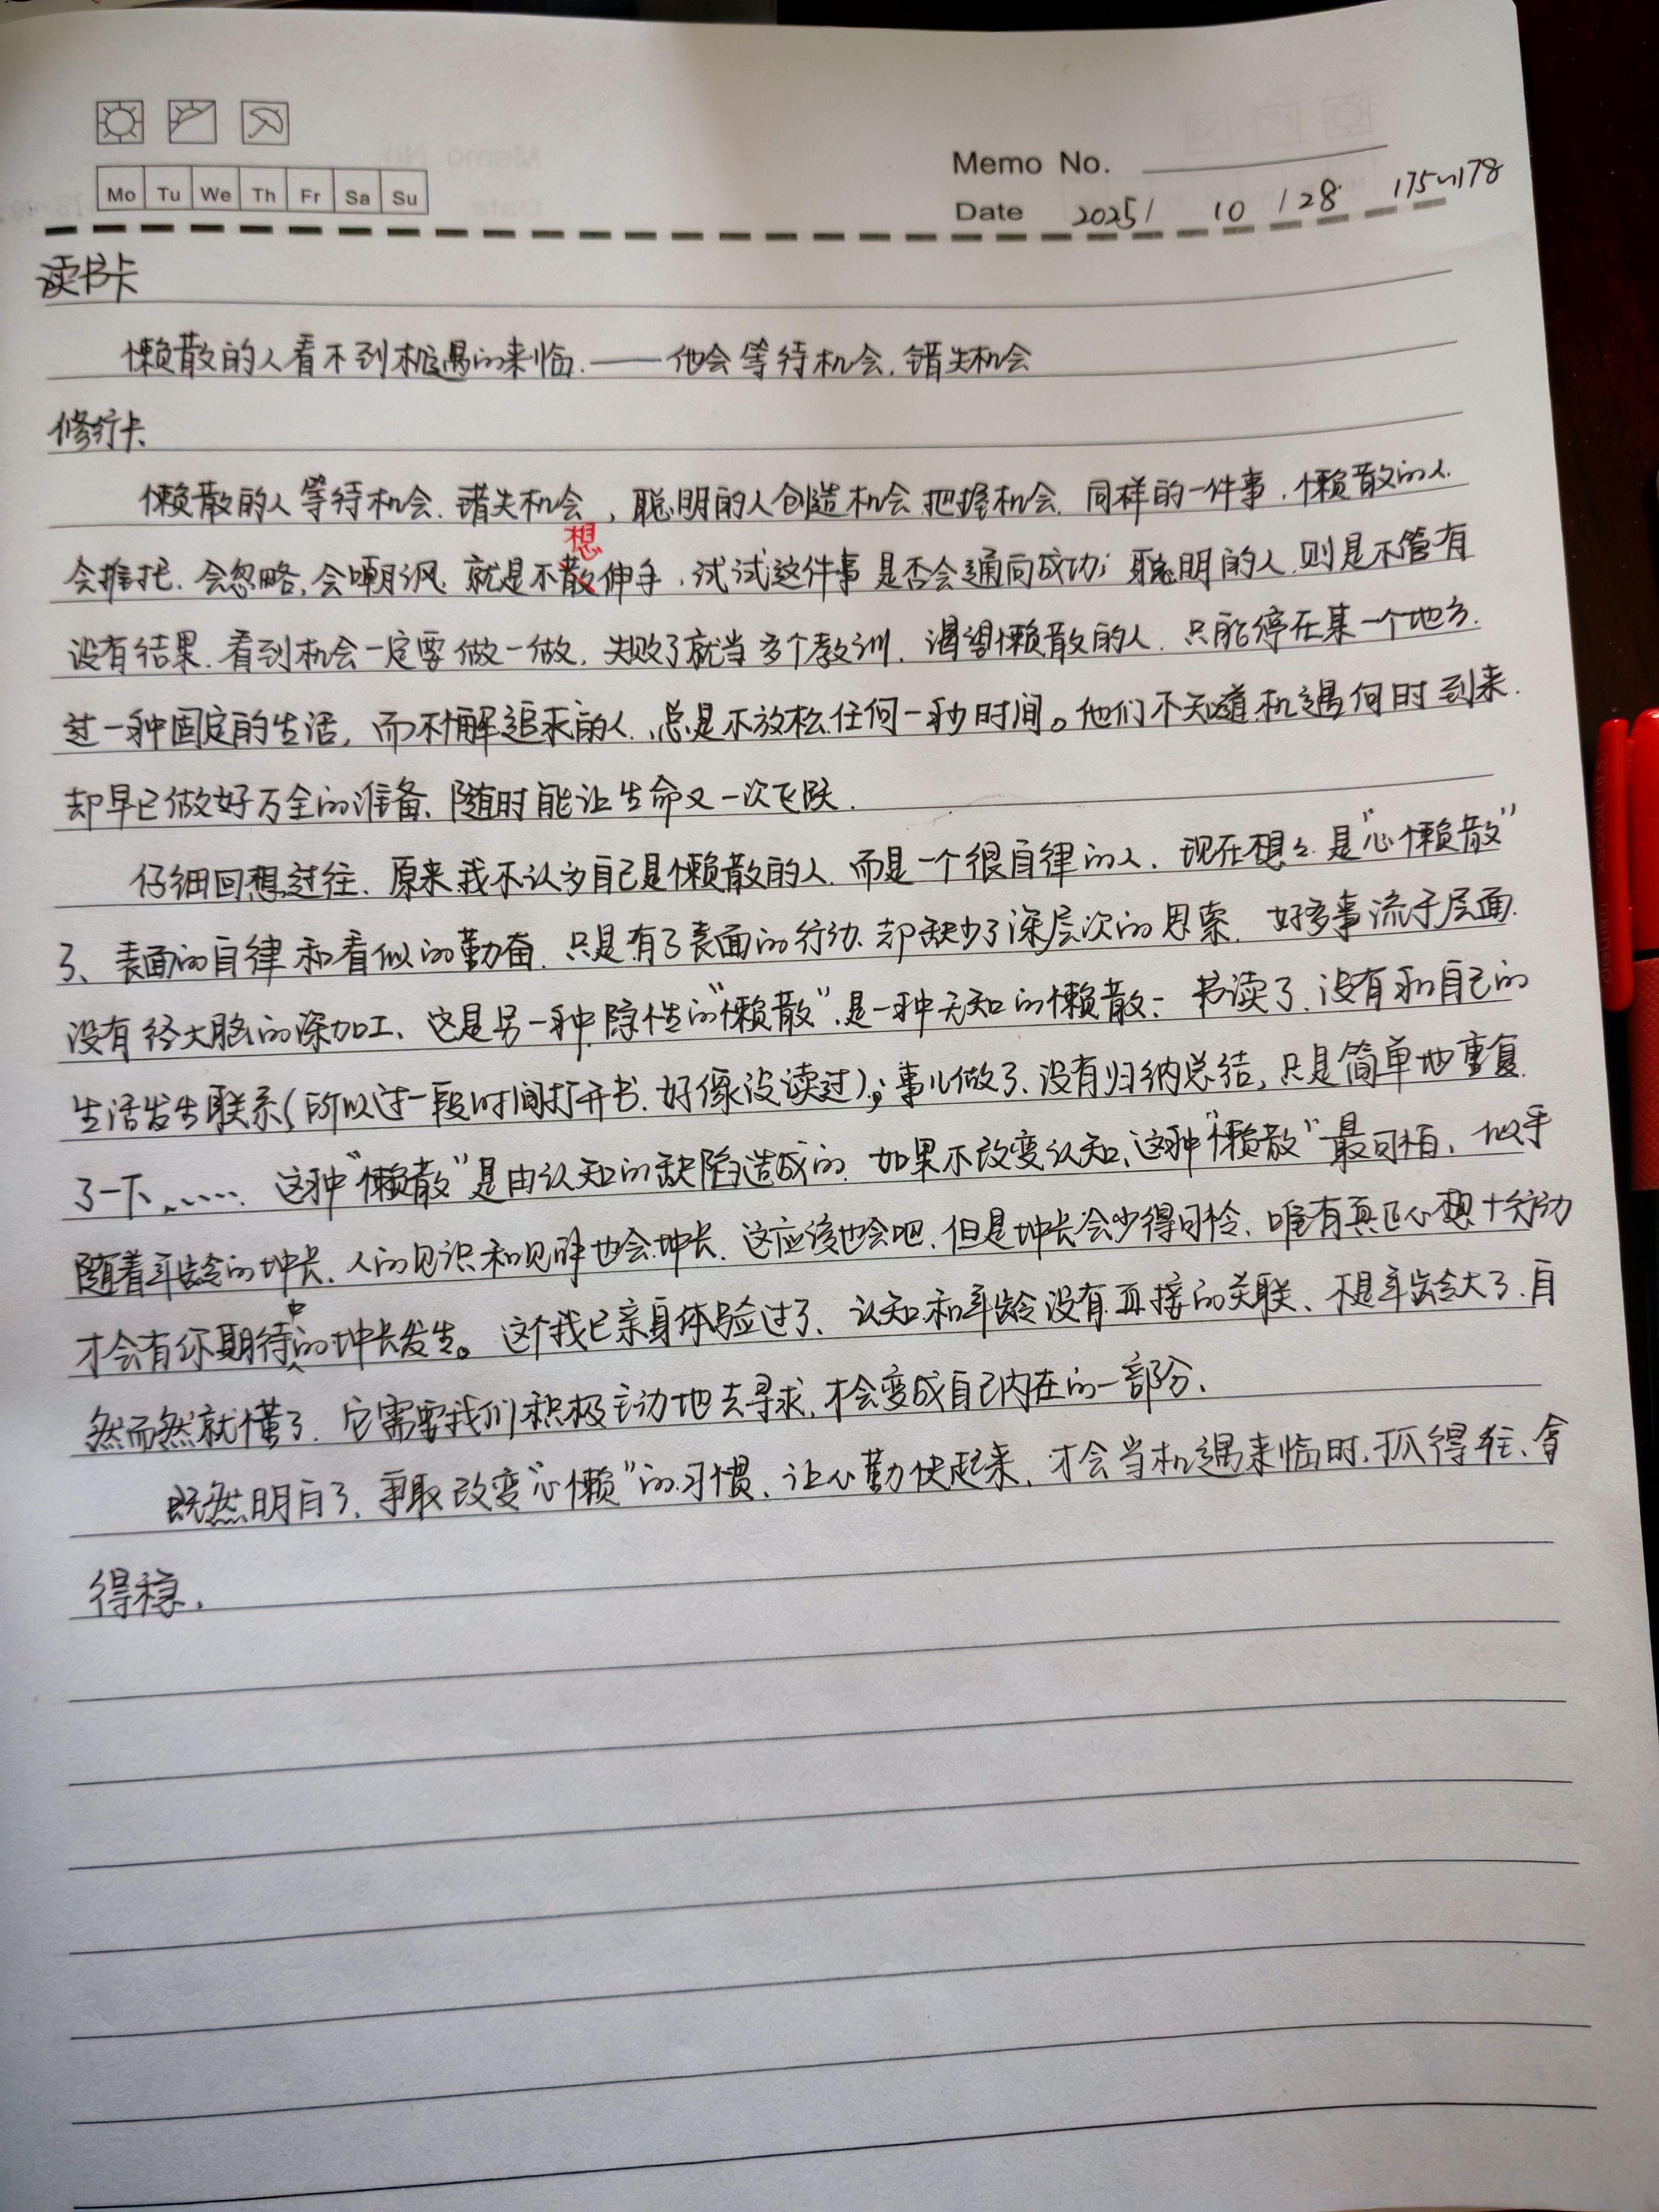 Memo No.
Mo Tu We Th Fr Sa Su
Date 2025/ 10 /28 175~178
读书卡
懒散的人看不到机遇的来临.——他会等待机会.错失机会
修行卡
懒散的人等待机会.错失机会,聪明的人创造机会.把握机会.同样的一件事.懒散的人
会推托.会忽略,会嘲讽.就是不想伸手.试试这件事是否会通向成功;聪明的人.则是不管有
没有结果.看到机会一定要做一做.失败了就当多个教训.渴望懒散的人.只能停在某一个地方.
过一种固定的生活,而不懈追求的人.总是不放松任何一秒时间。他们不知道机遇何时到来.
却早已做好万全的准备、随时能让生命又一次飞跃.
仔细回想过往.原来我不认为自己是懒散的人.而是一个很自律的人.现在想想是"心懒散"
了、表面的自律和看似的勤奋.只是有了表面的行动.却缺少了深层次的思索.好多事流于层面.
没有经大脑的深加工、这是另一种隐性的"懒散".是一种无知的懒散:书读了.没有和自己的
生活发生联系(所以过一段时间打开书.好像没读过);事儿做了.没有归纳总结,只是简单地重复
了一下......这种"懒散"是由认知的缺陷造成的.如果不改变认知、这种"懒散"最可怕、似乎
随着年龄的增长.人的见识和见解也会增长.这应该也会吧.但是增长会少得可怜.唯有真正心想+行动
才会有你期待中的增长发生。这个我已亲身体验过了、认知和年龄没有直接的关联、不是年龄大了.自
然而然就懂了.它需要我们积极主动地去寻求.才会变成自己内在的一部分.
既然明白了.争取改变"心懒"的习惯、让心勤快起来.才会当机遇来临时.抓得住、拿
得稳.